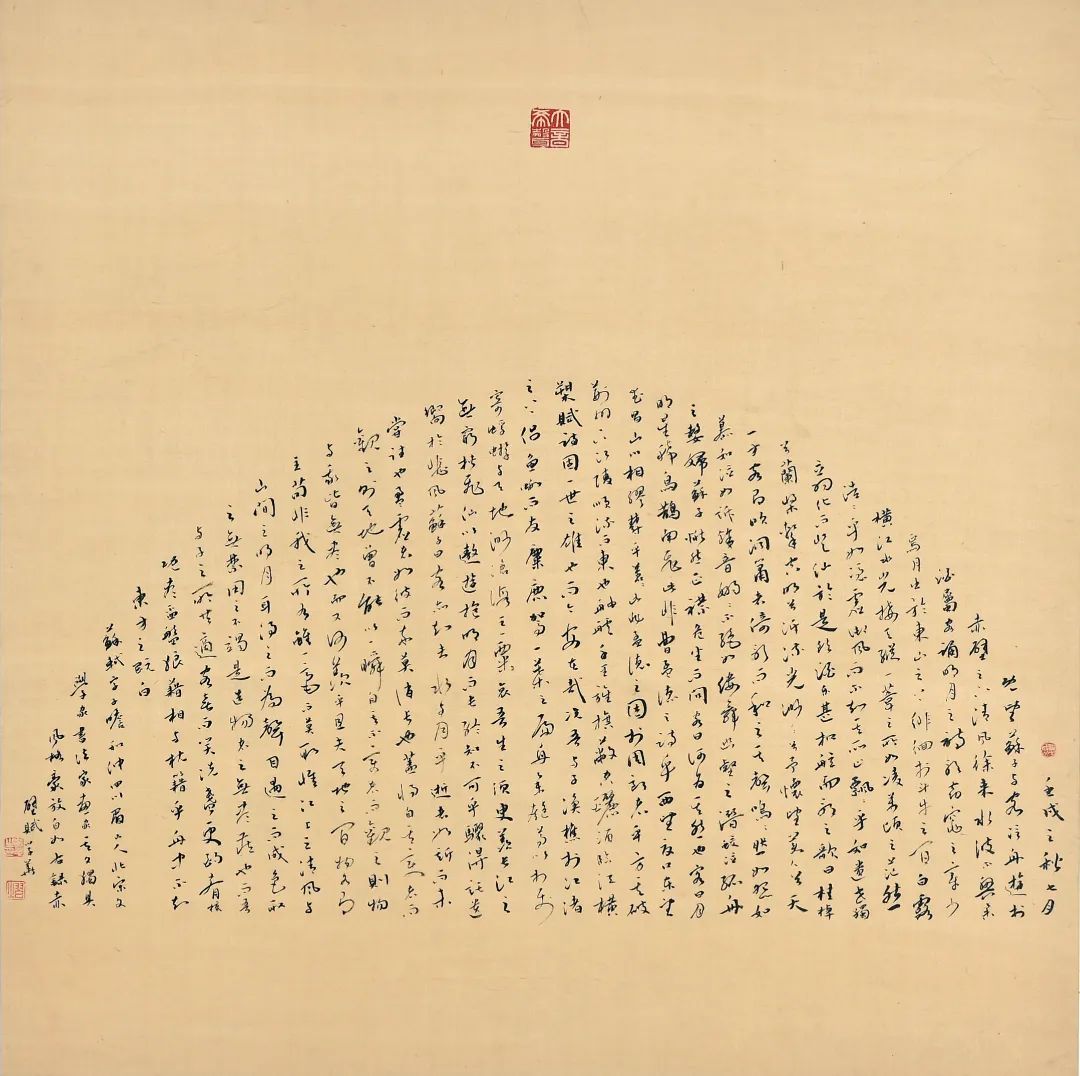 壬戌之秋七月
既望蘇子與客泛舟遊於
赤壁之下清風徐来水波不興舉
酒屬客誦明月之詩歌窈窕之章少
焉月出於東山之上徘徊於斗牛之間白露
橫江水光接天縱一葦之所如凌萬頃之茫然
浩浩乎如憑虛御風而不知其所止飄飄乎如遺世獨
立羽化而登仙於是飲酒樂甚扣舷而歌之歌曰桂棹
兮蘭槳擊空明兮泝流光渺渺兮予懷望美人兮天
一方客有吹洞簫者倚歌而和之其聲嗚嗚然如怨如
慕如泣如訴餘音嫋嫋不絕如縷舞幽壑之潛蛟泣孤舟
之嫠婦蘇子愀然正襟危坐而問客曰何為其然也客曰月
明星稀烏鵲南飛此非曹孟德之詩乎西望夏口東望
武昌山川相繆鬱乎蒼蒼此非孟德之困於周郎者乎方其破
荊州下江陵順流而東也舳艫千里旌旗蔽空釃酒臨江橫
槊賦詩固一世之雄也而今安在哉况吾與子漁樵於江渚
之上侶魚蝦而友麋鹿駕一葉之扁舟舉匏尊以相屬
寄蜉蝣於天地渺滄海之一粟哀吾生之須臾羨長江之
無窮挾飛仙以遨遊抱明月而長終知不可乎驟得託遺
響於悲風蘇子曰客亦知夫水與月乎逝者如斯而未
嘗往也盈虛者如彼而卒莫消長也蓋將自其變者而
觀之則天地曾不能以一瞬自其不變者而觀之則物
與我皆無盡也而又何羨乎且夫天地之間物各有
主苟非我之所有雖一毫而莫取惟江上之清風與
山間之明月耳得之而為聲目遇之而成色取
之無禁用之不竭是造物者之無盡藏也而吾
與子之所共適客喜而笑洗盞更酌肴核
既盡杯盤狼藉相與枕藉乎舟中不知
東方之既白
蘇軾字子瞻和仲四川眉山人北宋文
學家書法家畫家其詞獨具
風格豪放自如右錄赤
壁賦